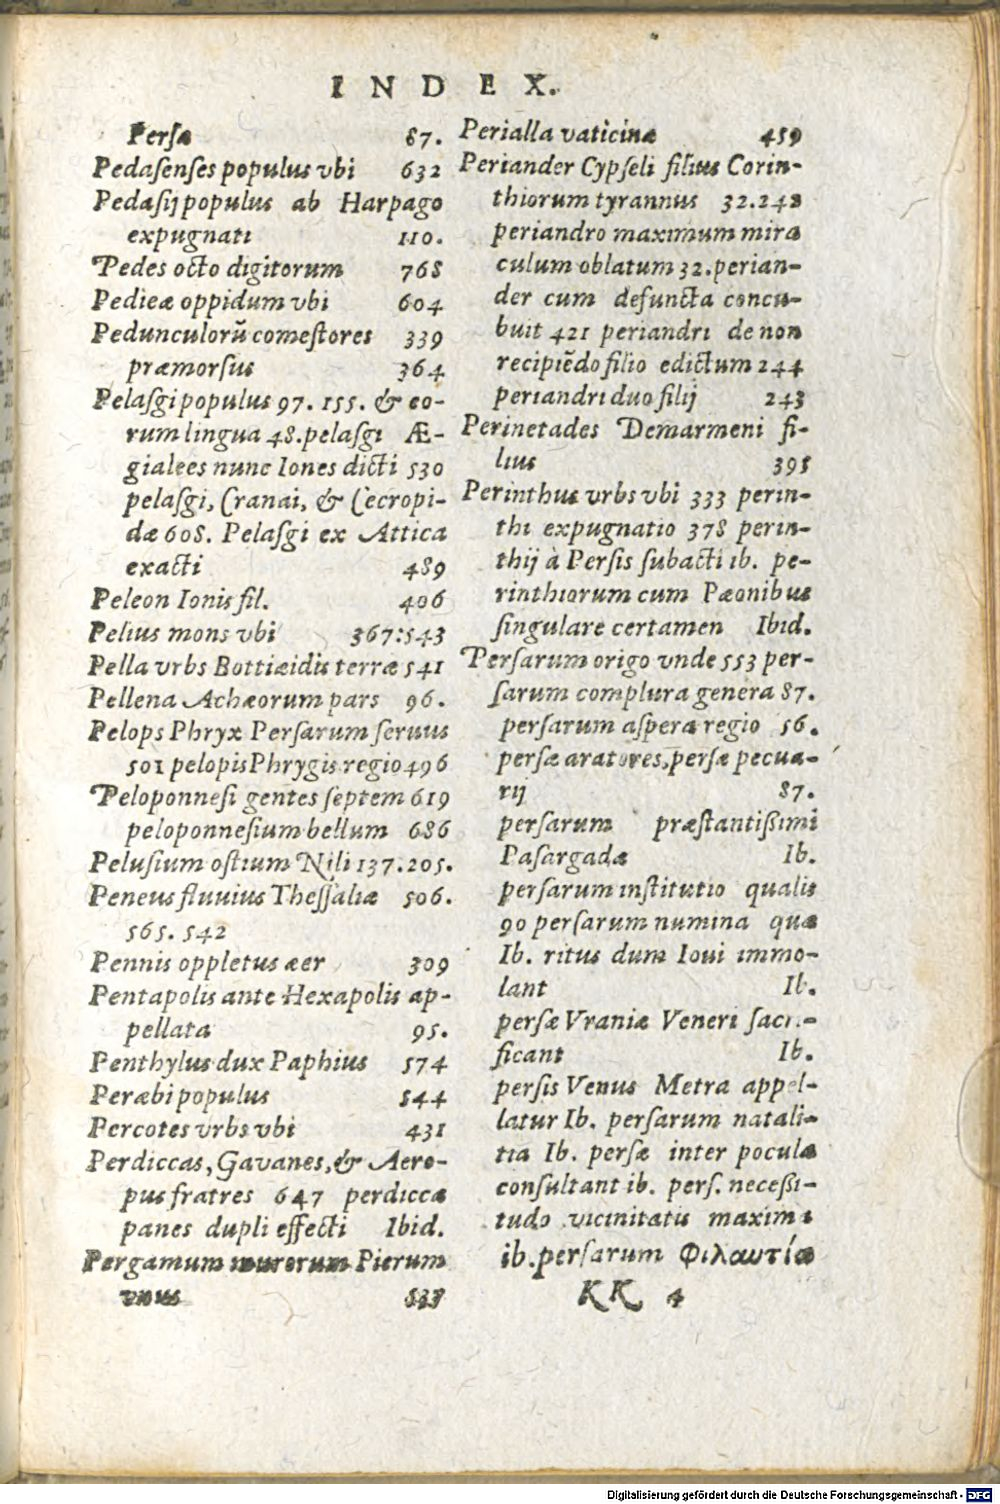 INDEX.
Persæ 87.
Pedasenses populus vbi 632
Pedasij populus ab Harpago
expugnati 110.
Pedes octo digitorum 768
Pedieæ oppidum vbi 604
Pedunculorũ comestores 339
præmorsus 364
Pelasgi populus 97. 155. & eo-
rum lingua 48. pelasgi Æ-
gialees nunc Iones dicti 530
pelasgi, Cranai, & Cecropi-
dæ 608. Pelasgi ex Attica
exacti 489
Peleon Ionis fil. 406
Pelius mons vbi 367:543
Pella vrbs Bottiæidis terræ 541
Pellena Achæorum pars 96.
Pelops Phryx Persarum seruus
501 pelopis Phrygis regio 496
Peloponnesi gentes septem 619
peloponnesium bellum 686
Pelusium ostium Nili 137. 205.
Peneus fluuius Thessaliæ 506.
565. 542
Pennis oppletus aer 309
Pentapolis ante Hexapolis ap-
pellata 95.
Penthylus dux Paphius 574
Peræbi populus 544
Percotes vrbs vbi 431
Perdiccas, Gavanes, & Aero-
pus fratres 647 perdiccæ
panes dupli effecti Ibid.
Pergamum murorum Pierum
vnus 533
Perialla vaticina 459
Periander Cypseli filius Corin-
thiorum tyrannus 32. 242
periandro maximum mira
culum oblatum 32. perian-
der cum defuncta concu-
buit 421 periandri de non
recipiẽdo filio edictum 244
periandri duo filij 243
Perinetades Demarmeni fi-
lius 395
Perinthus vrbs vbi 333 perin-
thi expugnatio 378 perin-
thij à Persis subacti ib. pe-
rinthiorum cum Pæonibus
singulare certamen Ibid.
Persarum origo vnde 553 per-
sarum complura genera 87.
persarum aspera regio 56.
persæ aratores, persæ pecua-
rij 87.
persarum præstantißimi
Pasargadæ Ib.
persarum institutio qualis
90 persarum numina quæ
Ib. ritus dum Ioui immo-
lant Ib.
persæ Vraniæ Veneri sacri-
ficant Ib.
persis Venus Metra appel-
latur Ib. persarum natali-
tia Ib. persæ inter pocula
consultant ib. pers. necessi-
tudo vicinitatis maxima
ib. persarum Φιλαυτία
KK 4
Digitalisierung gefördert durch die Deutsche Forschungsgemeinschaft - DFG